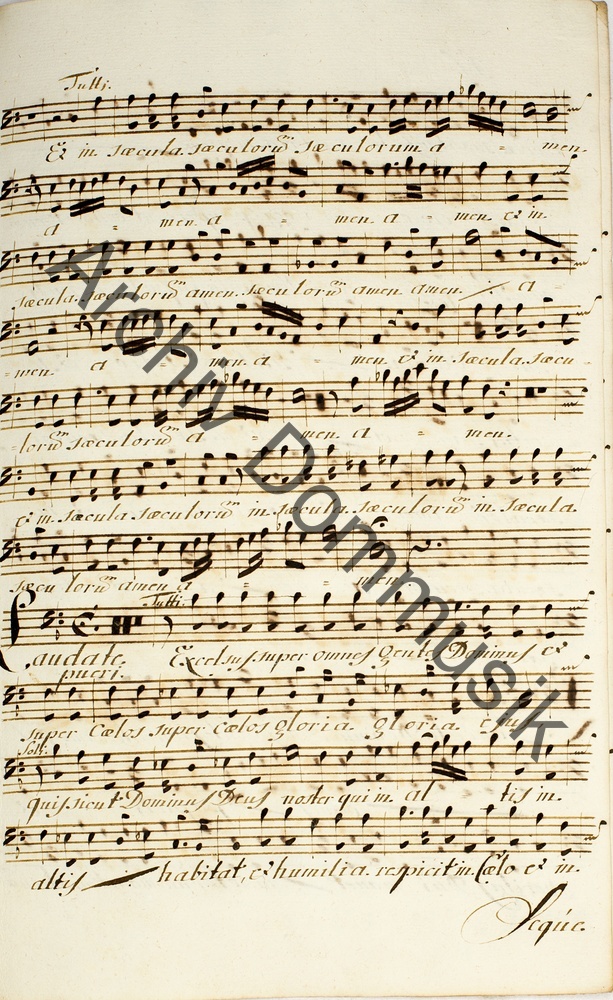 Tutti.
Et in sæcula sæculorũ sæculorum a = men.
a = men a = men a = men et in
sæcula sæculorũ amen sæculorũ amen amen ·/· a
= men a = men a = men et in sæcula sæcu =
= lorũ sæculorũ a = men a = men.
et in sæcula sæculorũ in sæcula sæculorũ in sæcula
sæculorũ amen a = men.
Tutti.
Laudate pueri. Excelsus super omnes gentes Dominus et
super Cœlos super cœlos gloria gloria ejus
Solo.
quis sicut Dominus Deus noster qui in al tis in
altis habitat, et humilia respicit in Cælo et in
Seque.
Archiv Dommusik